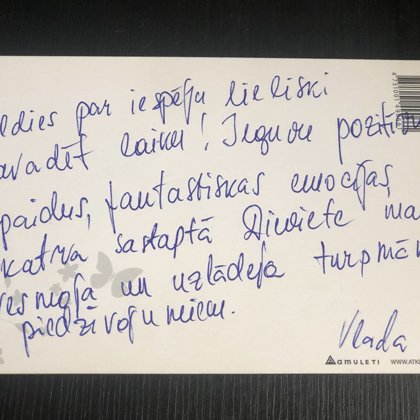 ldies par iespēju lieliski
avadēt laiku! Ieguvu pozitīv
paidus, fantastiskas emocijas,
katra sastaptā Dieviete ma
vesmoja un uzlādēja turpmā
piedzīvojumiem.
Vlada
AMULETI WWW.ATK